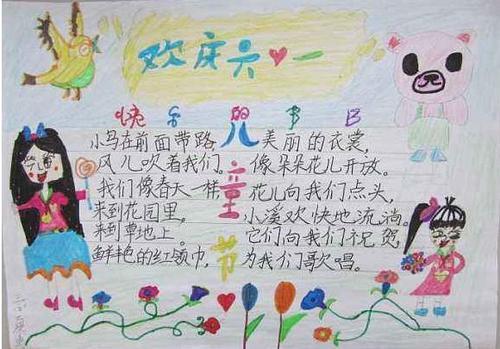 欢庆六一
快乐的节日
小鸟在前面带路,
风儿吹着我们。
我们像春天一样
来到花园里。
来到草地上。
鲜艳的红领巾,
儿童节
美丽的衣裳,
像朵朵花儿开放。
花儿向我们点头,
小溪欢快地流淌。
它们向我们祝贺,
为我们歌唱。